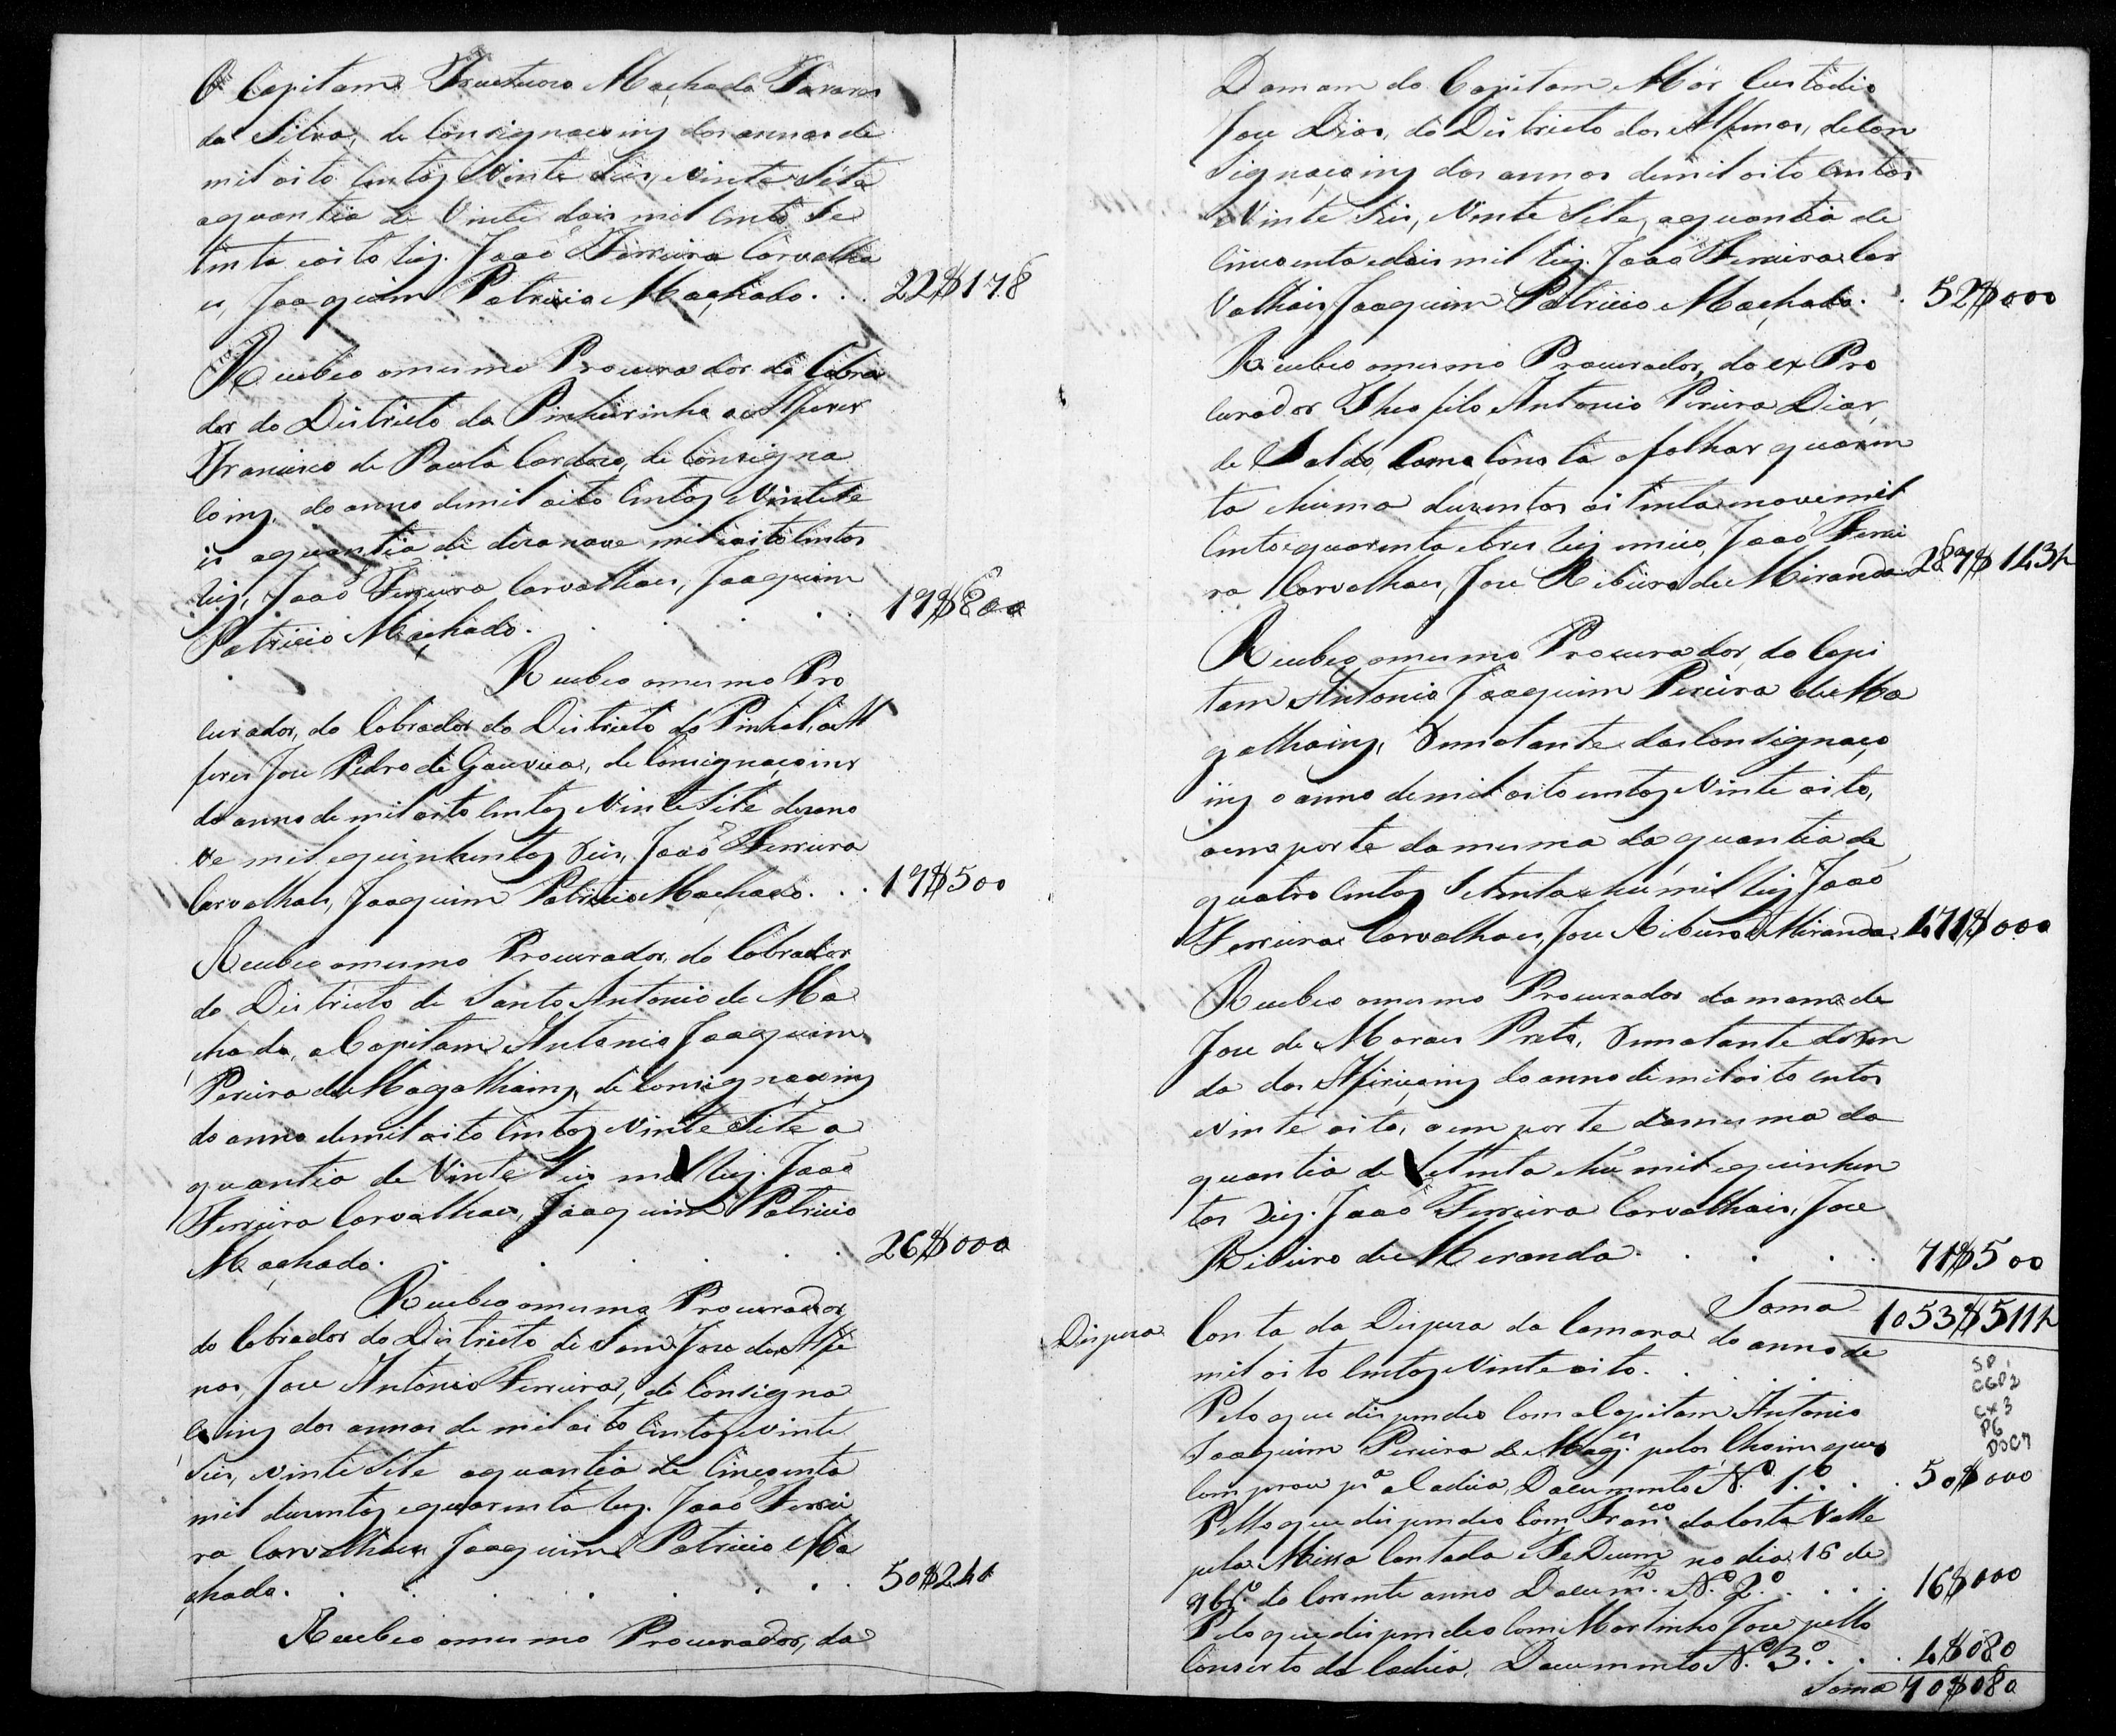 O Capitam Fructuozo Machado Tavares
da Silva, de Consignacoins dos annos de
mil oito Centos Vinte Seis, Vinte Sete
aquantia de Vinte dois mil Cento Se
tenta eoito reis. Joaõ Ferreira Carvalha
es, Joaquim Patricio Machado. . . 22$178
Recebeo omesmo Procurador do Cobra
dor do Districto da Pinheirinha o Alferes
Francisco de Paula Cardozo, de Consigna
coins, do anno demil oito Centos Vinte Se
is aquantia de dezanove mil eoito Centos
reis, Joaõ Ferreira Carvalhaes, Joaquim
Patricio Machado. . . . . 19$800
Recebeo omesmo Pro
curador, do Cobrador do Districto do Pinhal, o Al
feres Joze Pedro de Gouveia, de Consignaçoins
do anno de mil oito Centos Vinte Sete dezano
ve mil equinhentos reis, Joaõ Ferreira
Carvalhaes, Joaquim Patricio Machado. . . 19$500
Recebeo omesmo Procurador, do Cobrador
do Districto de Santo Antonio de Ma
chado, o Capitam Antonio Joaquim
Pereira de Magalhains, de Consignacoins
do anno demil oito Centos Vinte Sete a
quantia de Vinte Seis mil reis. Joaõ
Ferreira Carvalhaes, Joaquim Patricio
Machado. . . . . 26$000
Recebeo omesmo Procurador,
do Cobrador do Districto de Sam Joze dos Alfe
nas, Joze Antonio Ferreira, de Consigna
çoins dos annos de mil oito Centos Vinte
Seis, Vinte Sete aquantia de Cincoenta
mil duzentos equarenta reis. Joaõ Ferrei
ra Carvalhaes Joaquim Patricio Ma
chado. . . . . . . 50$240
Recebeo omesmo Procurador, da
Da mam do Capitam Mór Custodio
Joze Dias, do Districto dos Alfenas, de Con
Signaçoins dos annos demil oito Centos
Vinte Seis, Vinte Sete, aquantia de
Cincoenta edois mil reis. Joaõ Ferreira Car
Valhais, Joaquim Patricio Machado. . 52$000
Recebeo omesmo Procurador, do ex Pro
curador Theofilo Antonio Pereira Dias,
de Saldo, Como Consta afolhas quaren
ta ehuma duzentos oitenta enove mil
Cento equarenta etres reis emeio, Joaõ Ferrei
ra Carvalhaes, Joze Ribeiro de Miranda 289$143½
Recebeo omesmo Procurador, do Capi
tam Antonio Joaquim Pereira de Ma
galhains, Rematante das Consignaço
ins o anno demil oito centos Vinte oito,
oemporte damesma da quantia de
quatro Centos Setenta ehum mil reis Joaõ
Ferreira Carvalhaes, Joze Ribeiro Miranda. 471$000
Recebeo omesmo Procurador da mam de
Joze de Moraes Preto, Rematante da Ren
da das Afiriçoins do anno de mil oito centos
Vinte oito, oemporte damesma da
quantia de Setenta ehũ mil equinhen
tos reis. Joaõ Ferreira Carvalhais, Joze
Ribeiro de Meranda. . . . 71$500
Soma 1053$511½
Dispeza Conta da Dispeza da Camara do anno de
mil oito Centos Vinte oito. . . .
SP.
CGP2
CX3
P6
DOC7
Pelo que dispendeo Com o Capitam Antonio
Joaquim Pereira de Magˢ. pelos Chaoins que
Comprou pª a Cadeia, Documento Nº. 1º. . . . 50$000
Pello que dispendeo Com Franᶜᵒ. da Costa Valle
pela Missa Cantada e TeDeum no dia 16 de
9bʳᵒ. do Corrente anno Documᵗᵒ. Nº. 2º. . . . . 16$000
Pelo que dispendeo Com Martinho Joze pello
Conserto da Cadeia, Documento Nº. 3º. . . . 4$080
Soma 70$080